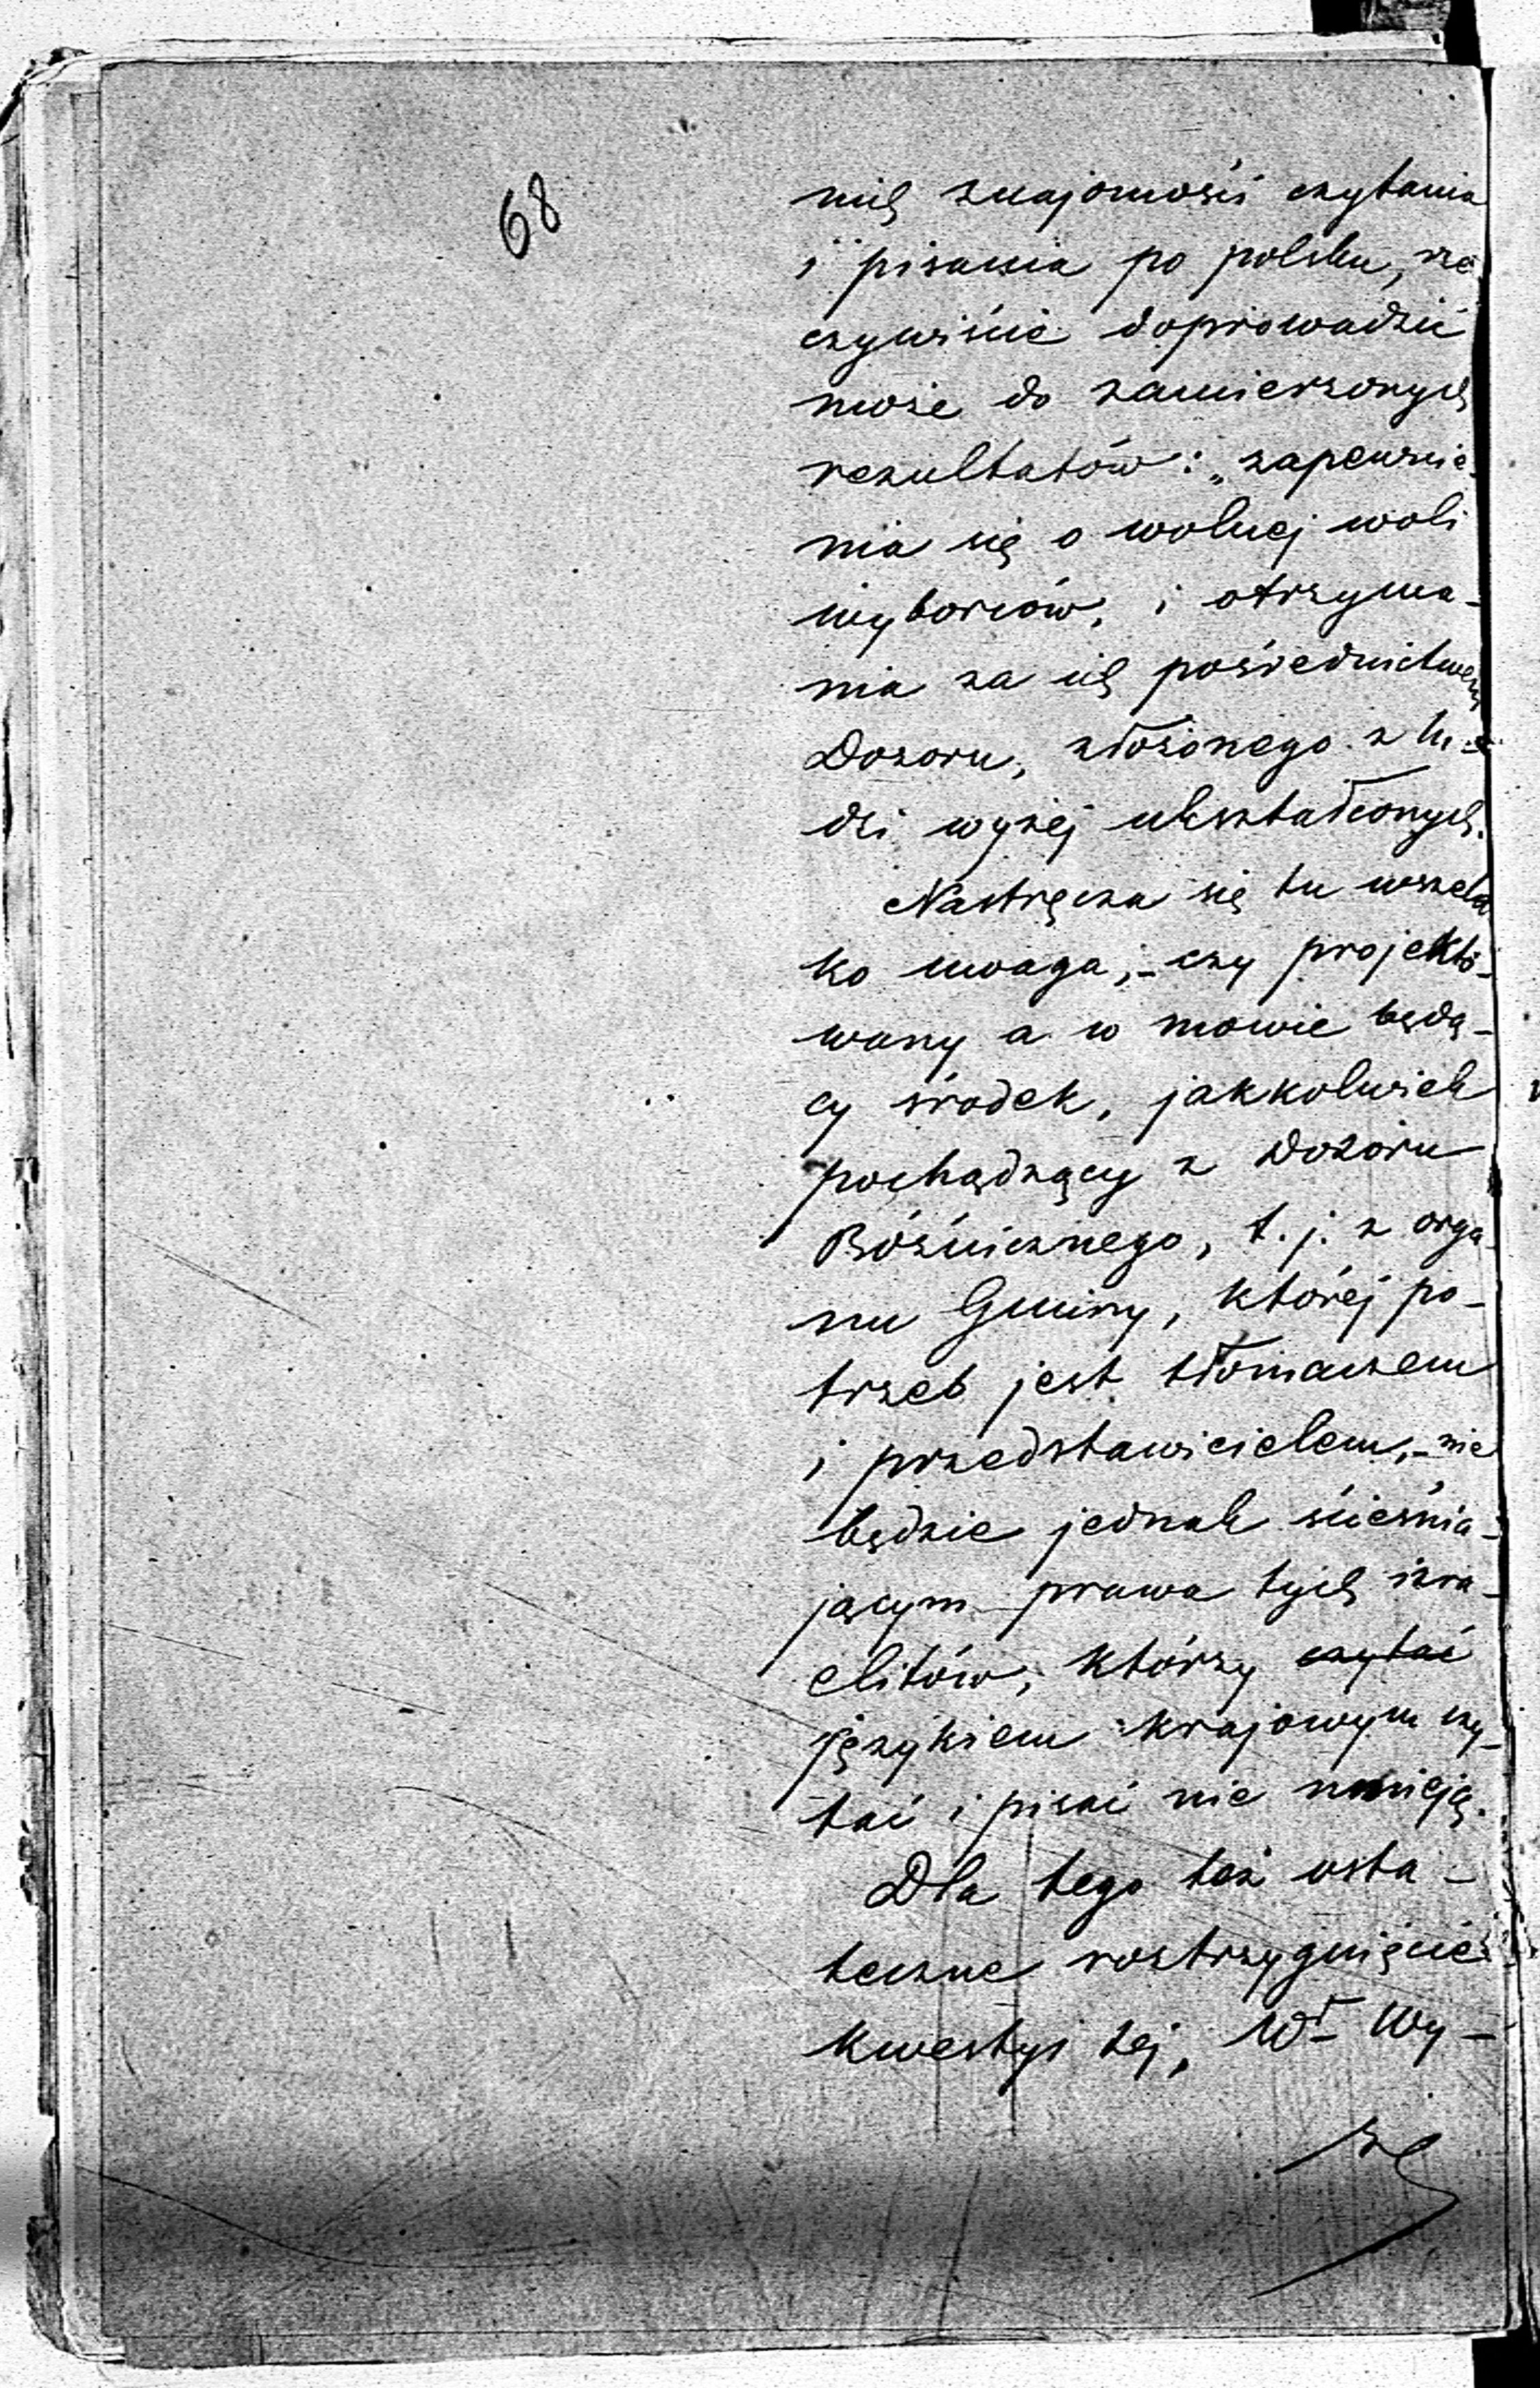 68
nich znajomości czytania
i pisania po polsku, rze
czywiście doprowadzić
może do zamierzonych
rezultatów: „zapewnie-
nia się o wolnej woli
wyborców, i otrzyma-
nia za ich pośrednictwem
Dozoru, złożonego z lu-
dzi wyżej ukształconych.
Nastręcza się tu wszela
ko uwaga, - czy projekto-
wany a w mowie będą-
cy środek, jakkolwiek
pochądzący z Dozoru
Bóżnicznego, t. j. z orga
nu Gminy, której po-
trzeb jest tłomaczem
i przedstawicielem, - nie
będzie jednak ścieśnia-
jącym prawa tych izra-
elitów, którzy czytać
językiem krajowym czy-
tać i pisać nie umieją.
Dla tego też osta-
teczne rostrzygnięcie
kwestyi tej, Wł Wy-